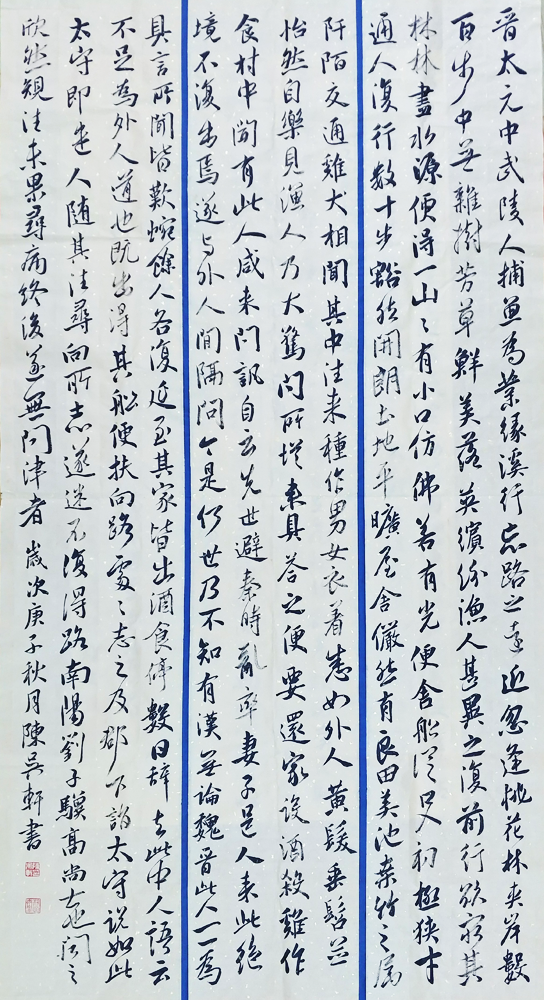 晉太元中武陵人捕魚為業緣溪行忘路之遠近忽逢桃花林夾岸數
百步中無雜樹芳草鮮美落英繽紛漁人甚異之復前行欲窮其
林林盡水源便得一山〻有小口仿佛若有光便舍船從口入初極狹才
通人復行數十步豁然開朗土地平曠屋舍儼然有良田美池桑竹之屬
阡陌交通雞犬相聞其中往來種作男女衣著悉如外人黃髮垂髫並
怡然自樂見漁人乃大驚問所從來具答之便要還家設酒殺雞作
食村中聞有此人咸來問訊自云先世避秦時亂率妻子邑人來此絕
境不復出焉遂與外人間隔問今是何世乃不知有漢無論魏晉此人一一為
具言所聞皆歎惋餘人各復延至其家皆出酒食停數日辭去此中人語云
不足為外人道也既出得其船便扶向路處〻志之及郡下詣太守說如此
太守即遣人隨其往尋向所志遂迷不復得路南陽劉子驥高尚士也聞之
欣然規往未果尋病終後遂無問津者 歲次庚子秋月陳吳軒書